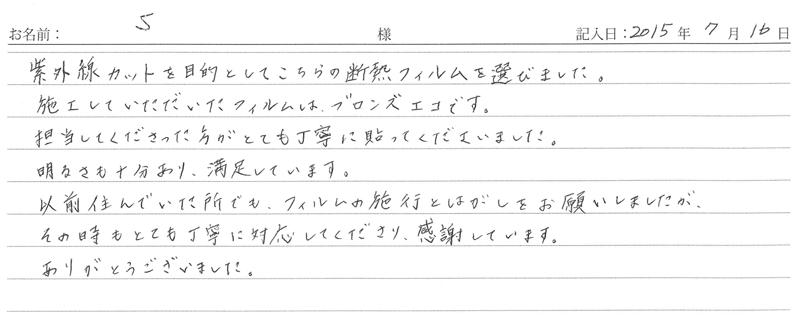 お名前： S 様 記入日：2015年 7月 16日
紫外線カットを目的としてこちらの断熱フィルムを選びました。
施工していただいたフィルムは、ブロンズエコです。
担当してくださった方がとても丁寧に貼ってくださいました。
明るさも十分あり、満足しています。
以前住んでいた所でも、フィルムの施行とはがしをお願いしましたが、
その時もとても丁寧に対応してくださり、感謝しています。
ありがとうございました。